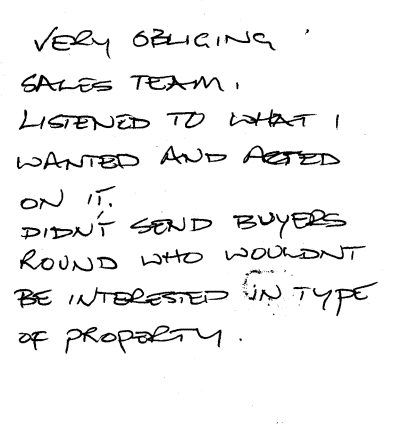 VERY OBLIGING
SALES TEAM.
LISTENED TO WHAT I
WANTED AND ACTED
ON IT.
DIDN'T SEND BUYERS
ROUND WHO WOULDNT
BE INTERESTED IN TYPE
OF PROPERTY.